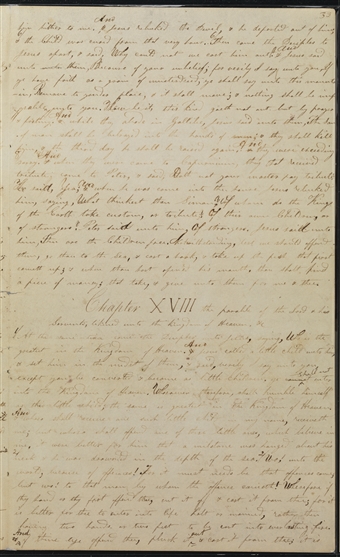 33
him hither to me, & Jesus rebuked the Devil, & he departed out of him,
& the Child was cured from that very hour. Then came the Disciples to
Jesus apart, & said, Why could not we cast him out? & Jesus said
unto them, Because of your unbelief; for verily I say unto you if
ye have faith as a grain of mustard seed, ye shall say unto this mountain
Remove to yonder place, & it shall move; & nothing shall be im
possible unto you. Howbeit this kind goeth not out but by prayer
& fasting. & while they abode in Galilee, Jesus said unto them, The Son
of man shall be betrayed into the hands of men; & they shall kill
him & the third day he shall be raised again. & they were exceeding
& when they were come to Capernaum, they that received
tribute came to Peter, & said, Doth not your master pay tribute?
He said, Yea. & when he was come into the house Jesus rebuked
him, saying, What thinkest thou Simon? Of whom do the Kings
of the Earth take custom, or tribute? Of their own Children, or
of strangers? Peter saith unto him, Of strangers. Jesus saith unto
him, Then are the Children free. Notwithstanding, lest we should offend
them, go thou to the Sea, & cast a hook, & take up the fish that first
cometh up; & when thou hast opened his mouth, thou shalt find
a piece of money; that take, & give unto them for me & thee.
Chapter XVIII the parable of the Lord & his
Servants, likened unto the Kingdom of Heaven &c
At the same time came the Disciples unto Jesus, saying, Who is the
greatest in the Kingdom of Heaven? & Jesus called a little child unto him,
& set him in the midst of them, & said, verily I say unto you,
Except ye be converted & become as little children, ye shall not enter
into the Kingdom of Heaven. Whosoever, therefore, shall humble himself
as this little child, the same is greatest in the Kingdom of Heaven.
& whoso shall receive one such little child in my name, receiveth
me; but whoso shall offend one of these little ones, which believe in
me, it were better for him that a millstone was hanged about his
neck & he was drowned in the depth of the sea. Wo unto the
world, because of offences! For it must needs be that offences come;
but wo to that man by whom the offence cometh! Wherefore if
thy hand or thy foot offend thee, cut it off & cast it from thee; for it
is better for thee to enter into life halt or maimed, rather than
having two hands or two feet to be cast into everlasting fire.
And if thine eye offend thee, pluck it out & cast it from thee; it is